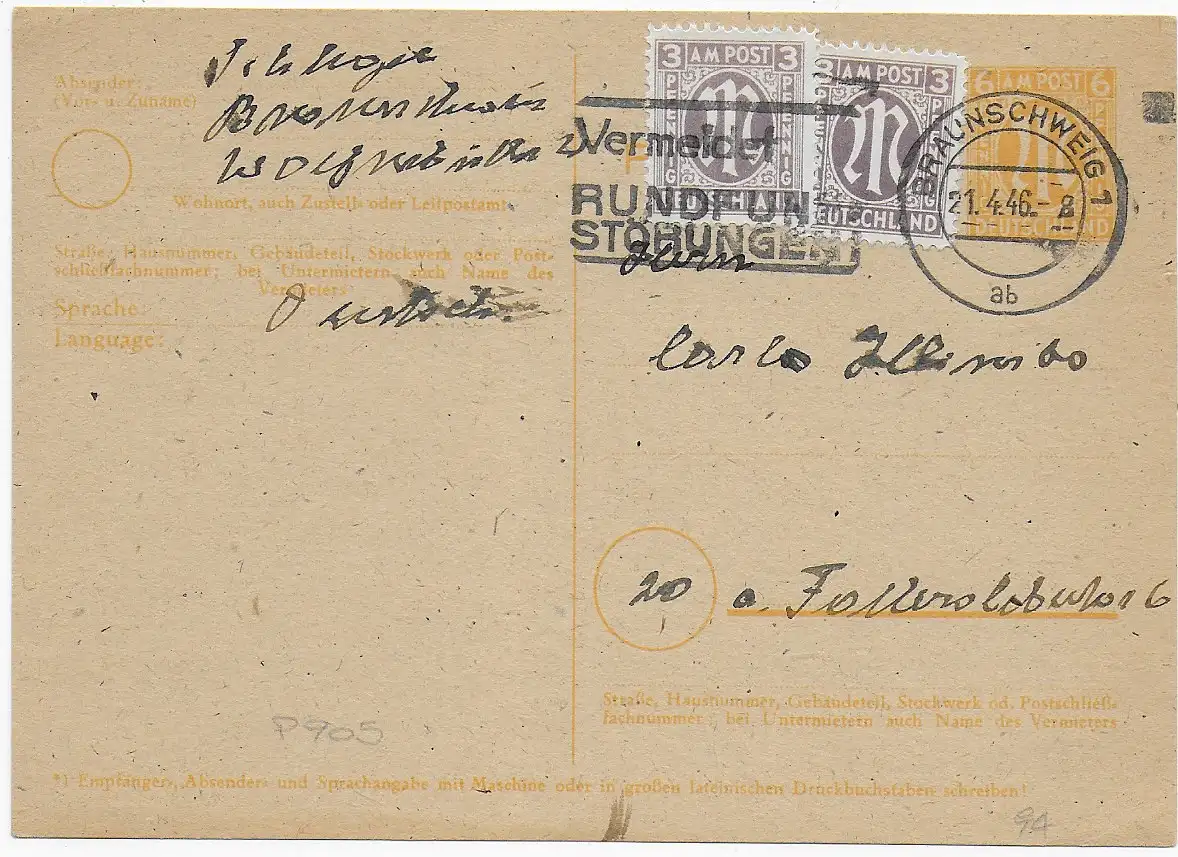 Absender:
(Vor- u. Zuname)
Wohnort, auch Zustell- oder Leitpostamt
Straße, Hausnummer, Gebäudeteil, Stockwerk oder Post-
schließfachnummer; bei Untermietern auch Name des
Vermieters
Sprache:
Language:
Deutsch
P 905
3 AM POST 3
PFENNIG
DEUTSCHLAND
3 AM POST 3
PFENNIG
DEUTSCHLAND
6 AM POST 6
DEUTSCHLAND
Vermeidet
RUNDFUN
STÖRUNGEN
BRAUNSCHWEIG 1
21.4.46.- 8
ab
Herrn
Carlo
20 a.
Straße, Hausnummer, Gebäudeteil, Stockwerk od. Postschließ-
fachnummer; bei Untermietern auch Name des Vermieters
*) Empfänger-, Absender- und Sprachangabe mit Maschine oder in großen lateinischen Druckbuchstaben schreiben!
94